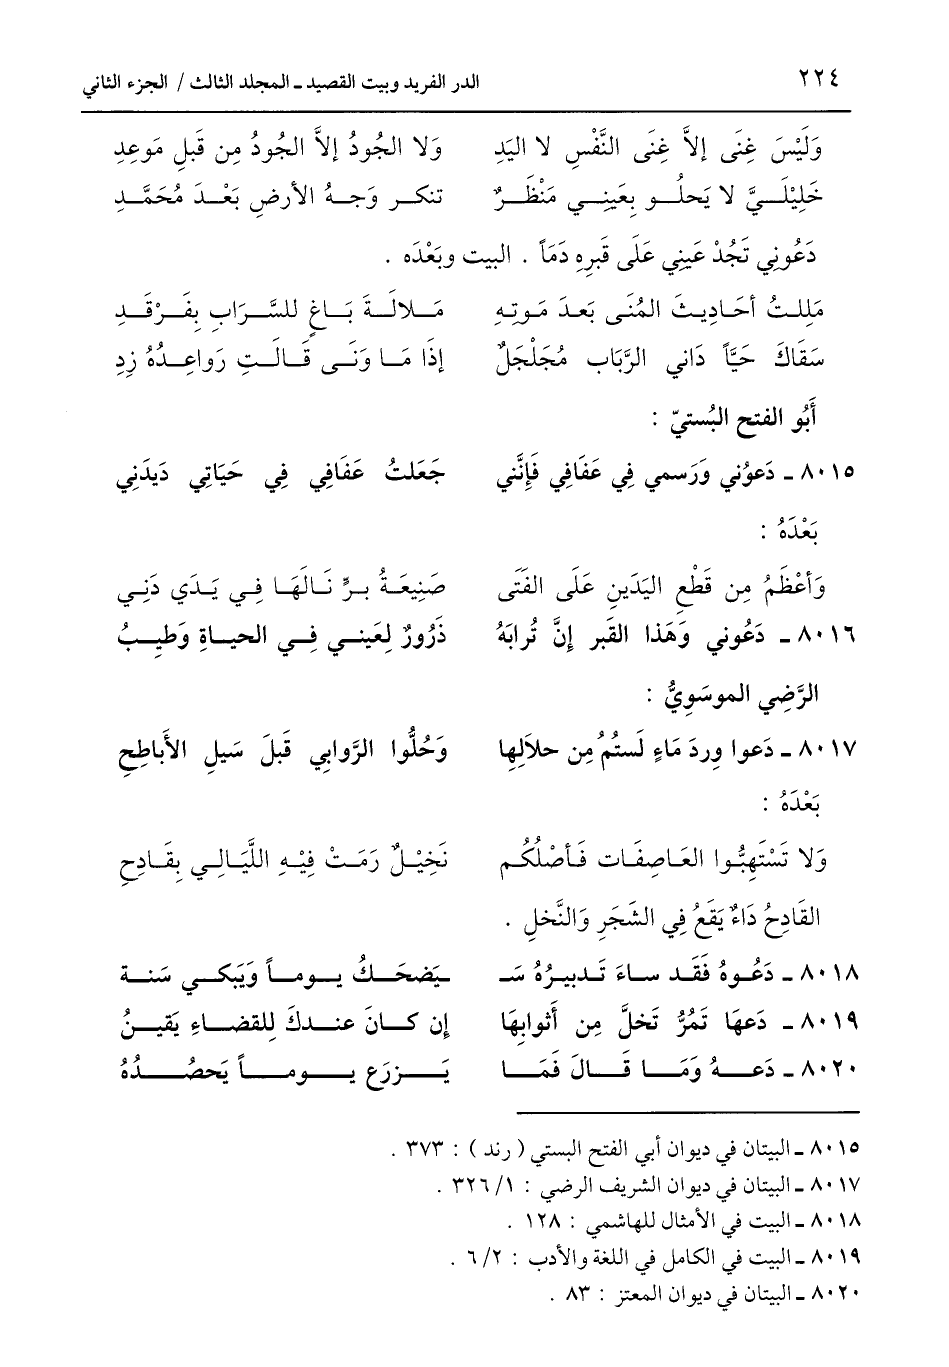 ٢٢٤ الدر الفريد وبيت القصيد ـ المجلد الثالث / الجزء الثاني
وَلَيْسَ غِنَى إلاَّ غِنَى النَّفْسِ لا اليَدِ وَلا الجُودُ إلاَّ الجُودُ مِن قَبلِ مَوعِدِ
خَلِيْلَيَّ لا يَحلُو بِعَينِي مَنْظَرٌ تنكر وَجهُ الأرضِ بَعْدَ مُحَمَّدِ
دَعُونِي تَجُدْ عَينِي عَلَى قَبرِهِ دَمَاً . البيت وبَعْدَه .
مَلِلتُ أحَادِيثَ المُنَى بَعدَ مَوتِهِ مَلالَةَ بَاغٍ للسَّرَابِ بِفَرْقَدِ
سَقَاكَ حَيَّاً دَانِي الرَّبَاب مُجَلْجَلٌ إذَا مَا وَنَى قَالَتِ رَواعِدُهُ زِدِ
أَبُو الفتح البُستيّ :
٨٠١٥ ـ دَعوُني وَرَسمي فِي عَفَافِي فَإنَّني جَعَلتُ عَفَافِي فِي حَيَاتِي دَيدَنِي
بَعْدَهُ :
وَأعْظَمُ مِن قَطْعِ اليَدَينِ عَلَى الفَتَى صَنِيعَةُ برٍّ نَالَهَا فِي يَدَي دَنِي
٨٠١٦ ـ دَعُوني وَهَذا القَبر إنَّ تُرابَهُ ذَرُورٌ لِعَيني فِي الحياةِ وَطيبُ
الرَّضِي الموسَوِيُّ :
٨٠١٧ ـ دَعوا وِردَ مَاءٍ لَستُمُ مِن حلالِها وَحُلُّوا الرَّوابي قَبلَ سَيلِ الأباطِحِ
بَعْدَهُ :
وَلا تَسْتَهِبُّوا العَاصِفَات فَأصْلُكُم نَخِيْلٌ رَمَتْ فِيْهِ اللَّيَالِي بِقَادِحِ
القَادِحُ دَاءٌ يَقَعُ فِي الشَجَرِ وَالنَّخلِ .
٨٠١٨ ـ دَعُوهُ فَقَد ساءَ تَدبيرُهُ سَـ ـيَضحَكُ يوماً وَيَبكي سَنة
٨٠١٩ ـ دَعهَا تَمُرُّ تَخلَّ مِن أثوابِهَا إن كَانَ عندكَ لِلقضاءِ يَقينُ
٨٠٢٠ ـ دَعهُ وَمَا قَالَ فَمَا يَزرَع يوماً يَحصُدُهُ
٨٠١٥ ـ البيتان في ديوان أبي الفتح البستي ( رند ) : ٣٧٣ .
٨٠١٧ ـ البيتان في ديوان الشريف الرضي : ١/ ٣٢٦ .
٨٠١٨ ـ البيت في الأمثال للهاشمي : ١٢٨ .
٨٠١٩ ـ البيت في الكامل في اللغة والأدب : ٢/ ٦ .
٨٠٢٠ ـ البيتان في ديوان المعتز : ٨٣ .